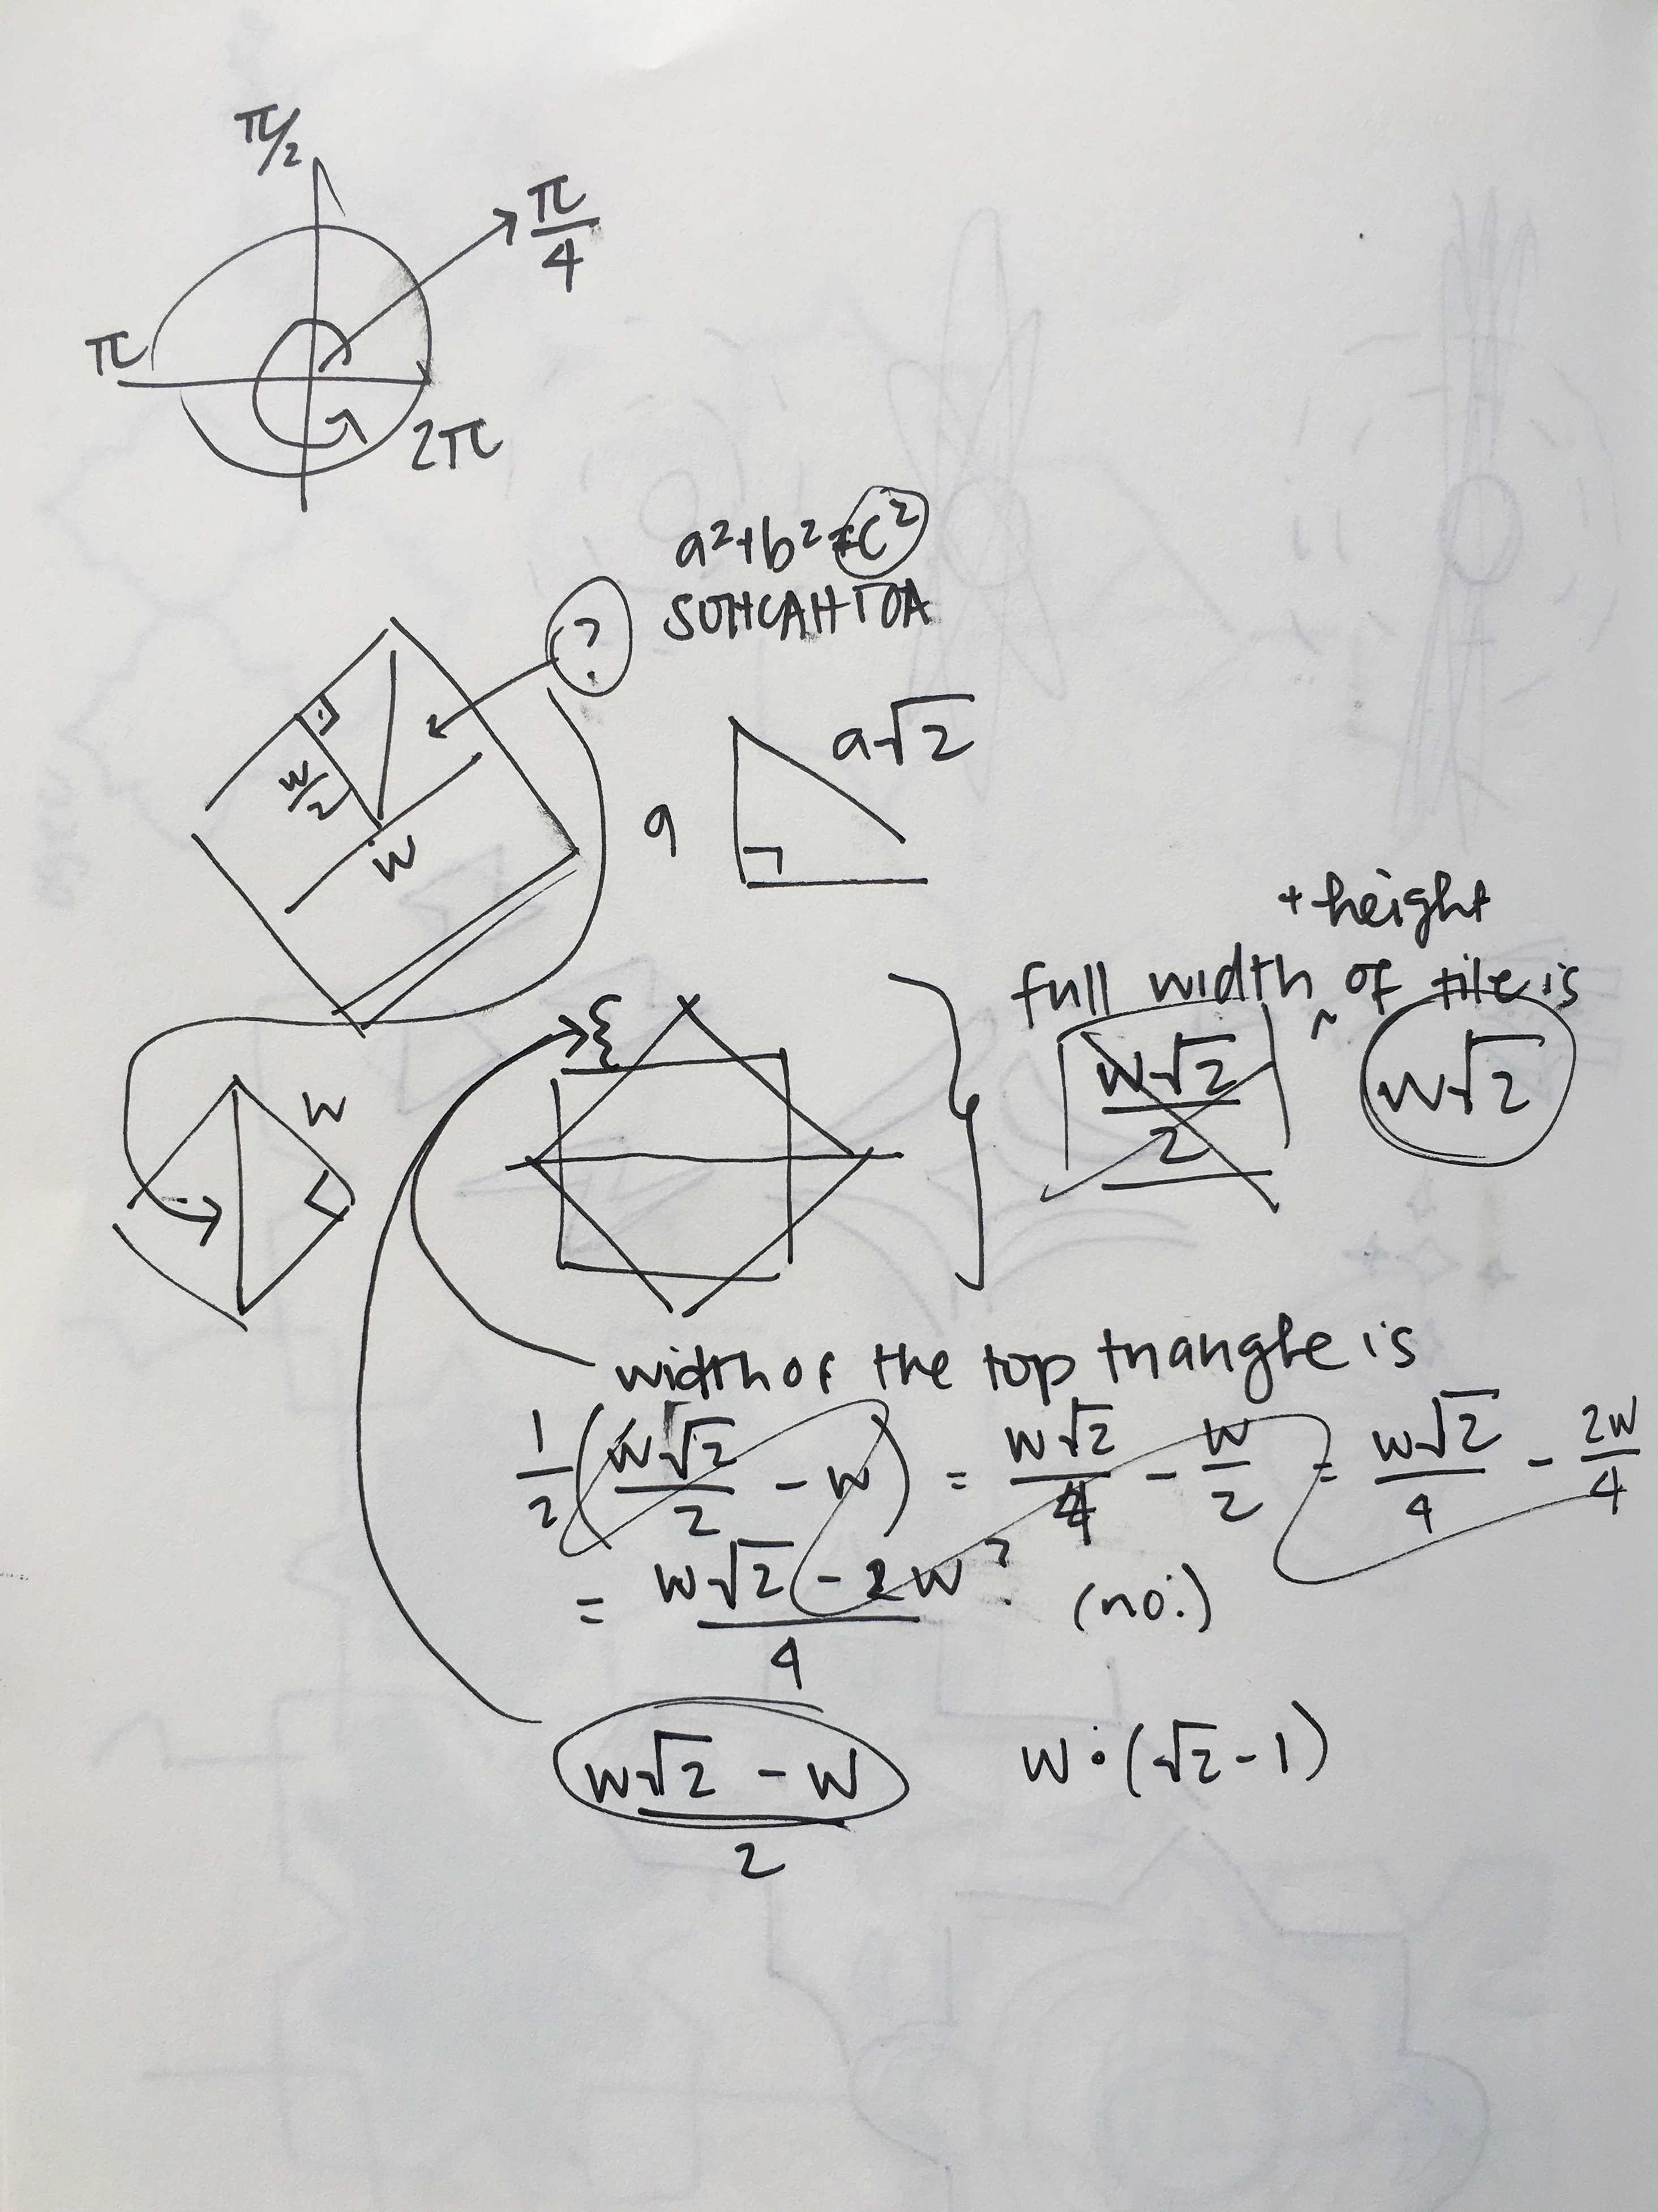 π/2
π/4
π
2π
a²+b²=c²
SOHCAHTOA
?
w/2
w
a√2
a
+ height
full width ^ of tile is
w√2/2
w√2
w
width of the top triangle is
1/2(w√2/2 - w) = w√2/4 - w/2 = w√2/4 - 2w/4
= w√2 - 2w/4 ? (no:)
w√2 - w/2
w·(√2-1)